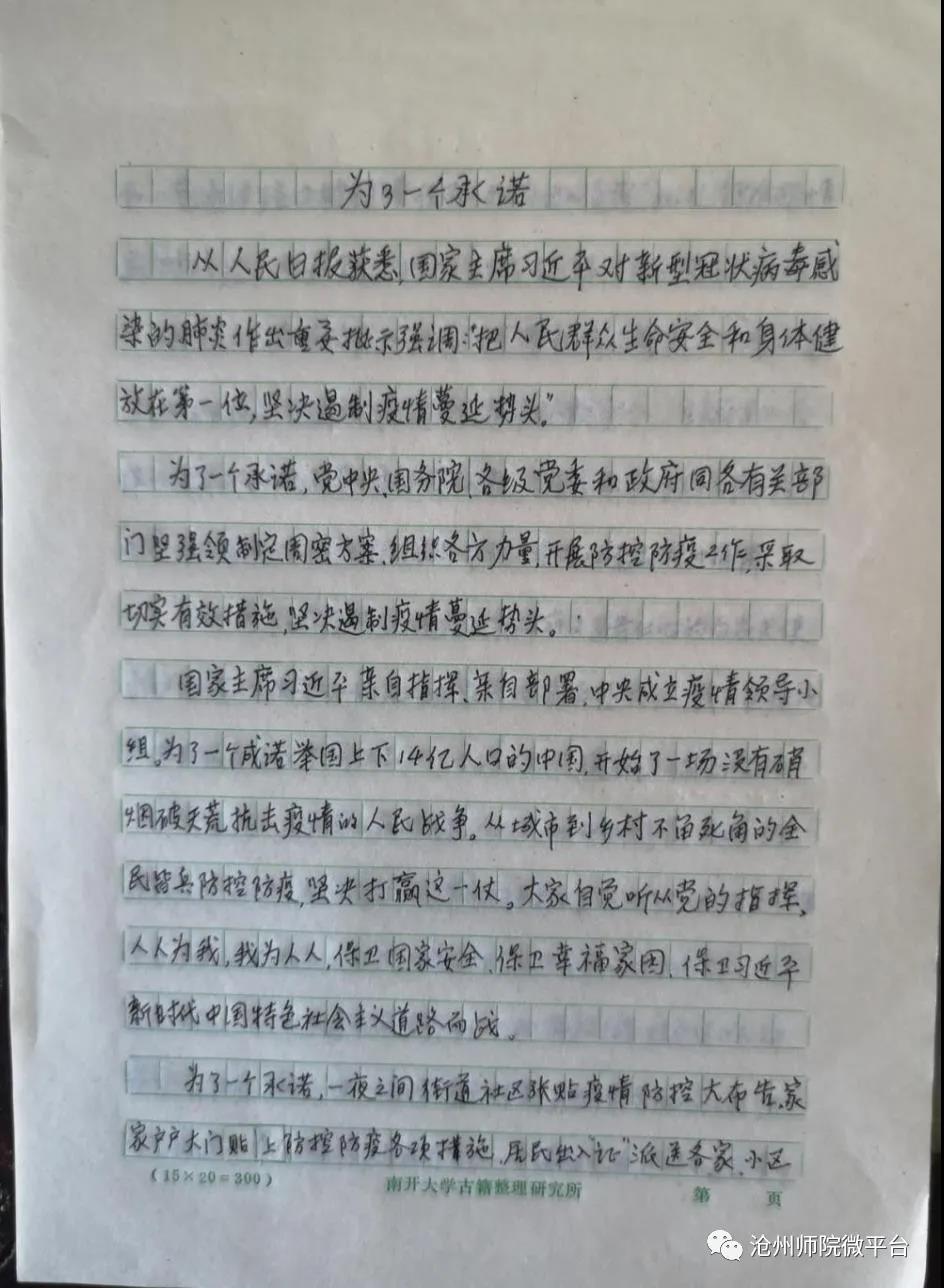 为了一个承诺
从人民日报获悉,国家主席习近平对新型冠状病毒感
染的肺炎作出重要批示强调:“把人民群众生命安全和身体健
放在第一位,坚决遏制疫情蔓延势头。”
为了一个承诺,党中央、国务院、各级党委和政府同各有关部
门坚强领制定周密方案、组织各方力量,开展防控防疫工作,采取
切实有效措施,坚决遏制疫情蔓延势头。
国家主席习近平亲自指挥、亲自部署,中央成立疫情领导小
组。为了一个成诺举国上下14亿人口的中国,开始了一场没有硝
烟破天荒抗击疫情的人民战争。从城市到乡村不留死角的全
民皆兵防控防疫,坚决打赢这一仗。大家自觉听从党的指挥,
人人为我,我为人人,保卫国家安全、保卫幸福家园、保卫习近平
新时代中国特色社会主义道路而战。
为了一个承诺,一夜之间街道社区张贴疫情防控大布告,家
家户户大门贴上防控防疫各项措施,居民出入“证”派送各家,小区
(15×20=300) 南开大学古籍整理研究所 第 页
沧州师院微平台